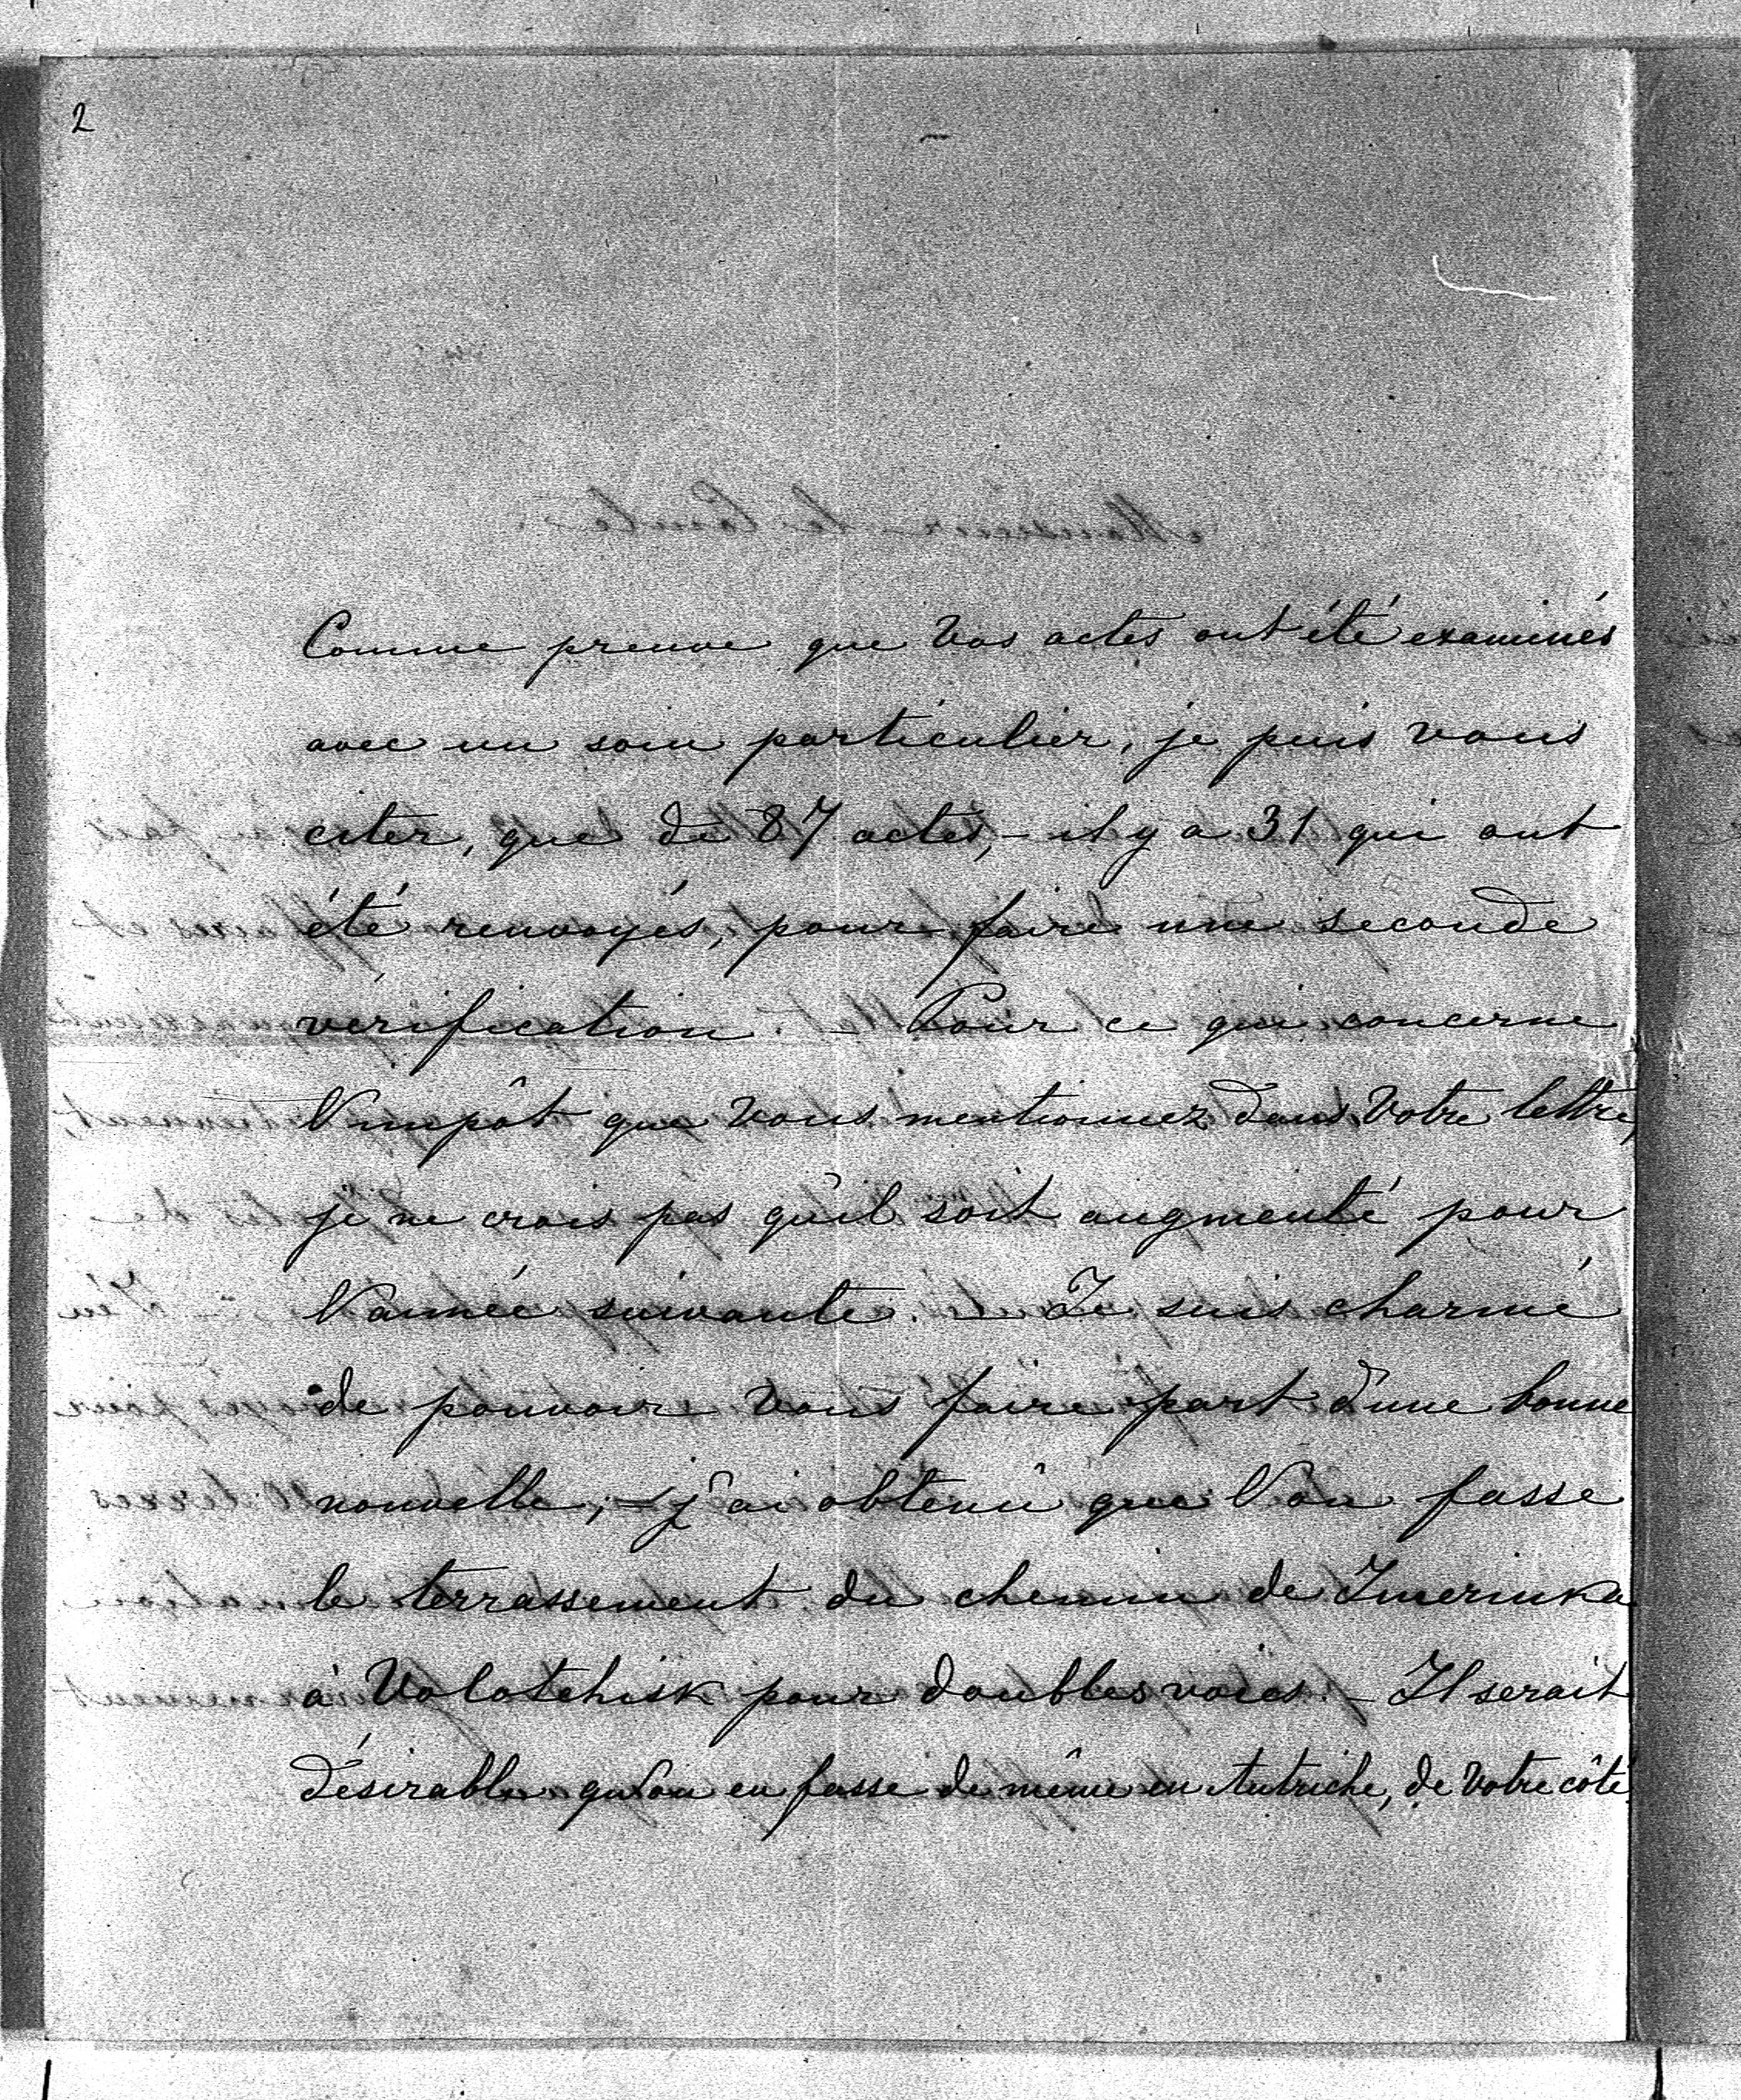 2
Comme preuve que Vos actes ont été examinés
avec un soin particulier, je puis vous
citer, que de 87 actes, – il y a 31 qui ont
été renvoyés, pour faire une seconde
vérification. – Pour ce qui concerne
l'impôt que vous mentionnez dans Votre lettre,
je ne crois pas qu'il soit augmenté pour
l'année suivante. – Je suis charmé
de pouvoir Vous faire part d'une bonne
nouvelle; – j'ai obtenu que l'on fasse
le terrassement du chemin de Jmerinka
à Volotchisk pour doubles voies. – Il serait
désirable qu'on en fasse de même en Autriche, de Votre côté.